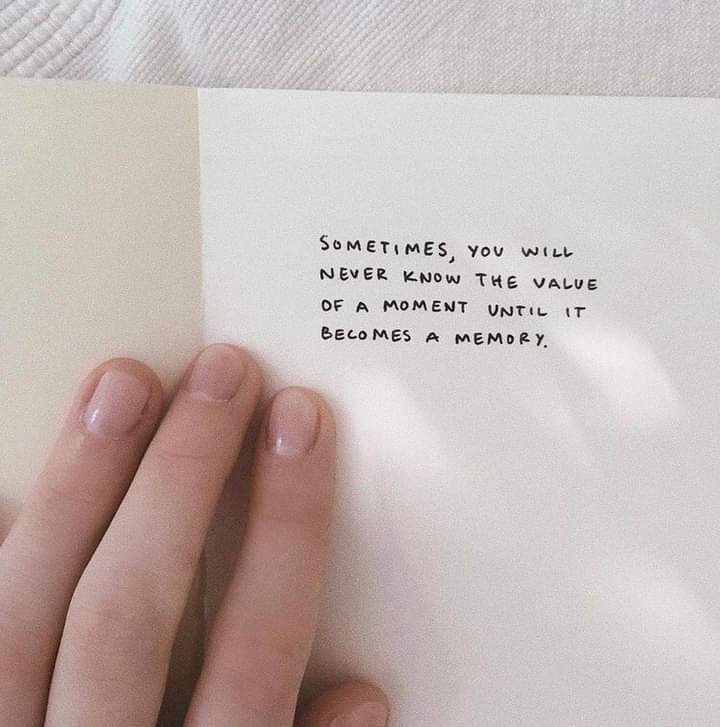 SOMETIMES, YOU WILL
NEVER KNOW THE VALUE
OF A MOMENT UNTIL IT
BECOMES A MEMORY.